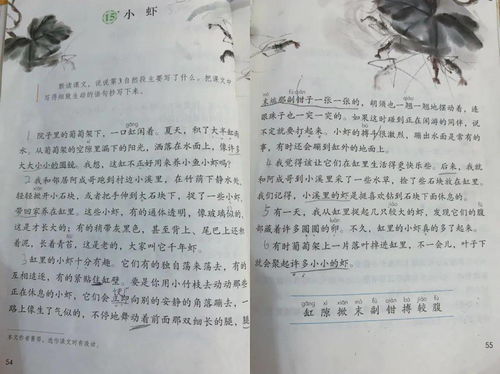 15 小虾
默读课文，说说第3自然段主要写了什么。把课文中
写得细致生动的语句抄写下来。
1 院子里的葡萄架下，一口缸闲着。夏天，积了大半缸雨
水，从葡萄架的空隙里漏下的阳光，洒落在水面上，像许多
大大小小的圆镜。我想，这缸不正好用来养小鱼小虾吗？
2 我和邻居阿成哥跑到村边小溪里，在竹荫下静水处，
轻轻掀开小石块，或者把手伸到大石块下，捉了一些小虾，
带回家养在缸里。这些小虾，有的通体透明，像玻璃似的，
这是才长大的；有的稍带灰黑色，甚至背上、尾巴上还积
着泥，长着青苔，这是老的，大家叫它千年虾。
3 缸里的小虾十分有趣。它们有的独自荡来荡去，有的
互相追逐，有的紧贴住缸壁。要是你用小竹枝去动动那些
正在休息的小虾，它们会立即向别的安静的角落蹦去，一
路上像生了气似的，不停地舞动着前面那双细长的腿，腿
本文作者菁莽，选作课文时有改动。
54
末端那副钳子一张一张的，胡须也一翘一翘地摆动着，连
眼珠子也一突一突的。如果这时碰到正在闲游的同伴，说
不定就要打起来。小虾的搏斗很激烈，蹦出水面是常有的
事，有时还会蹦到缸外的地面上。
4 我觉得该让它们在缸里生活得更快乐些。后来，我就
和阿成哥到小溪里采了一些水草，捡了些石块放在缸里。
我们记得，小溪里的虾是挺喜欢钻到石块下面休息的。
5 有一天，我从缸里捉起几只较大的虾，发现它们的腹
部藏着许多圆圆的卵。不久，缸里的小虾真的多了起来。
6 有时葡萄架上一片落叶掉进缸里，不一会儿，叶子下
就会聚起许多小小的虾。
gāng xì xiān mò fù qián bó jiào fù
缸 隙 掀 末 副 钳 搏 较 腹
55